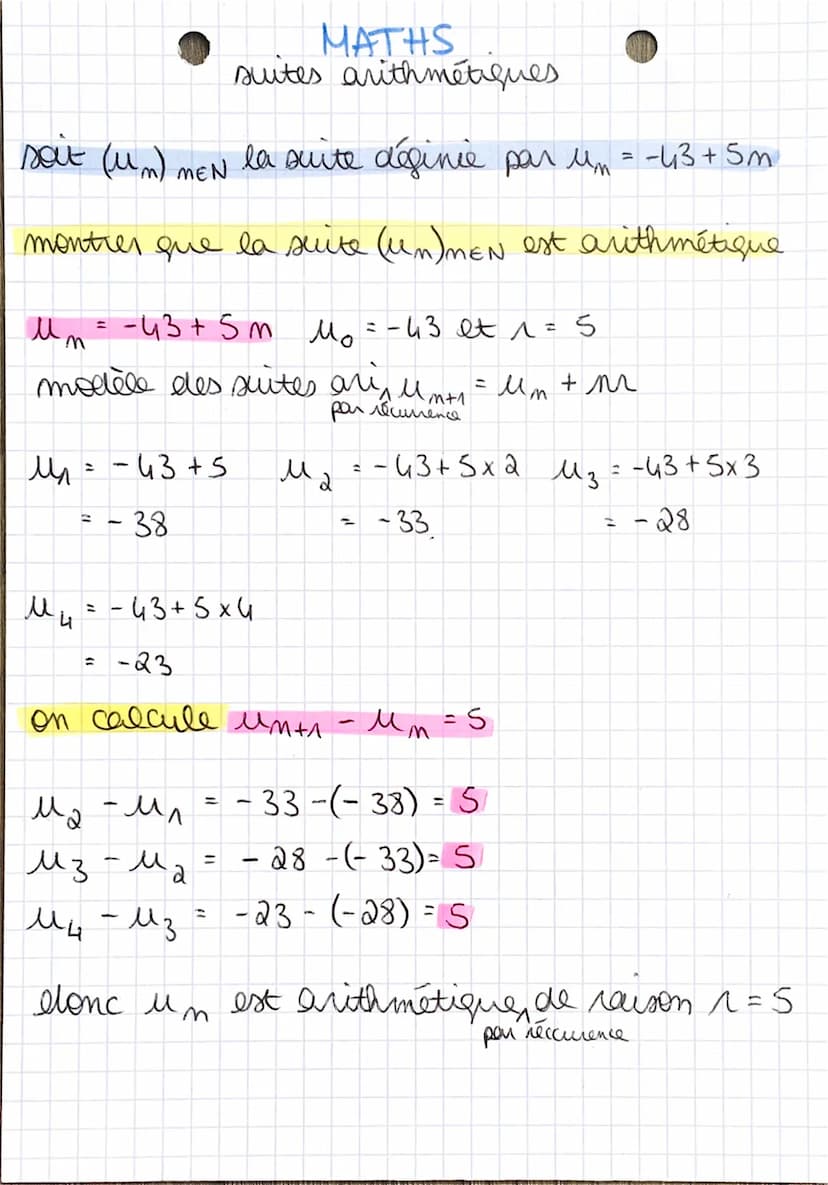 MATHS
suites arithmétiques
soit (un) n∈N la suite définie par un = -43 + 5n
montrer que la suite (un)n∈N est arithmétique
un = -43 + 5n u0 = -43 et r = 5
modèle des suites ari, un+1 = un + nr
par récurrence
u1 = -43 + 5 u2 = -43 + 5 x 2 u3 = -43 + 5 x 3
= -38 = -33. = -28
u4 = -43 + 5 x 4
= -23
on calcule un+1 - un = 5
u2 - u1 = -33 -(-38) = 5
u3 - u2 = -28 -(-33) = 5
u4 - u3 = -23 - (-28) = 5
donc un est arithmétique, de raison r = 5
par réccurence